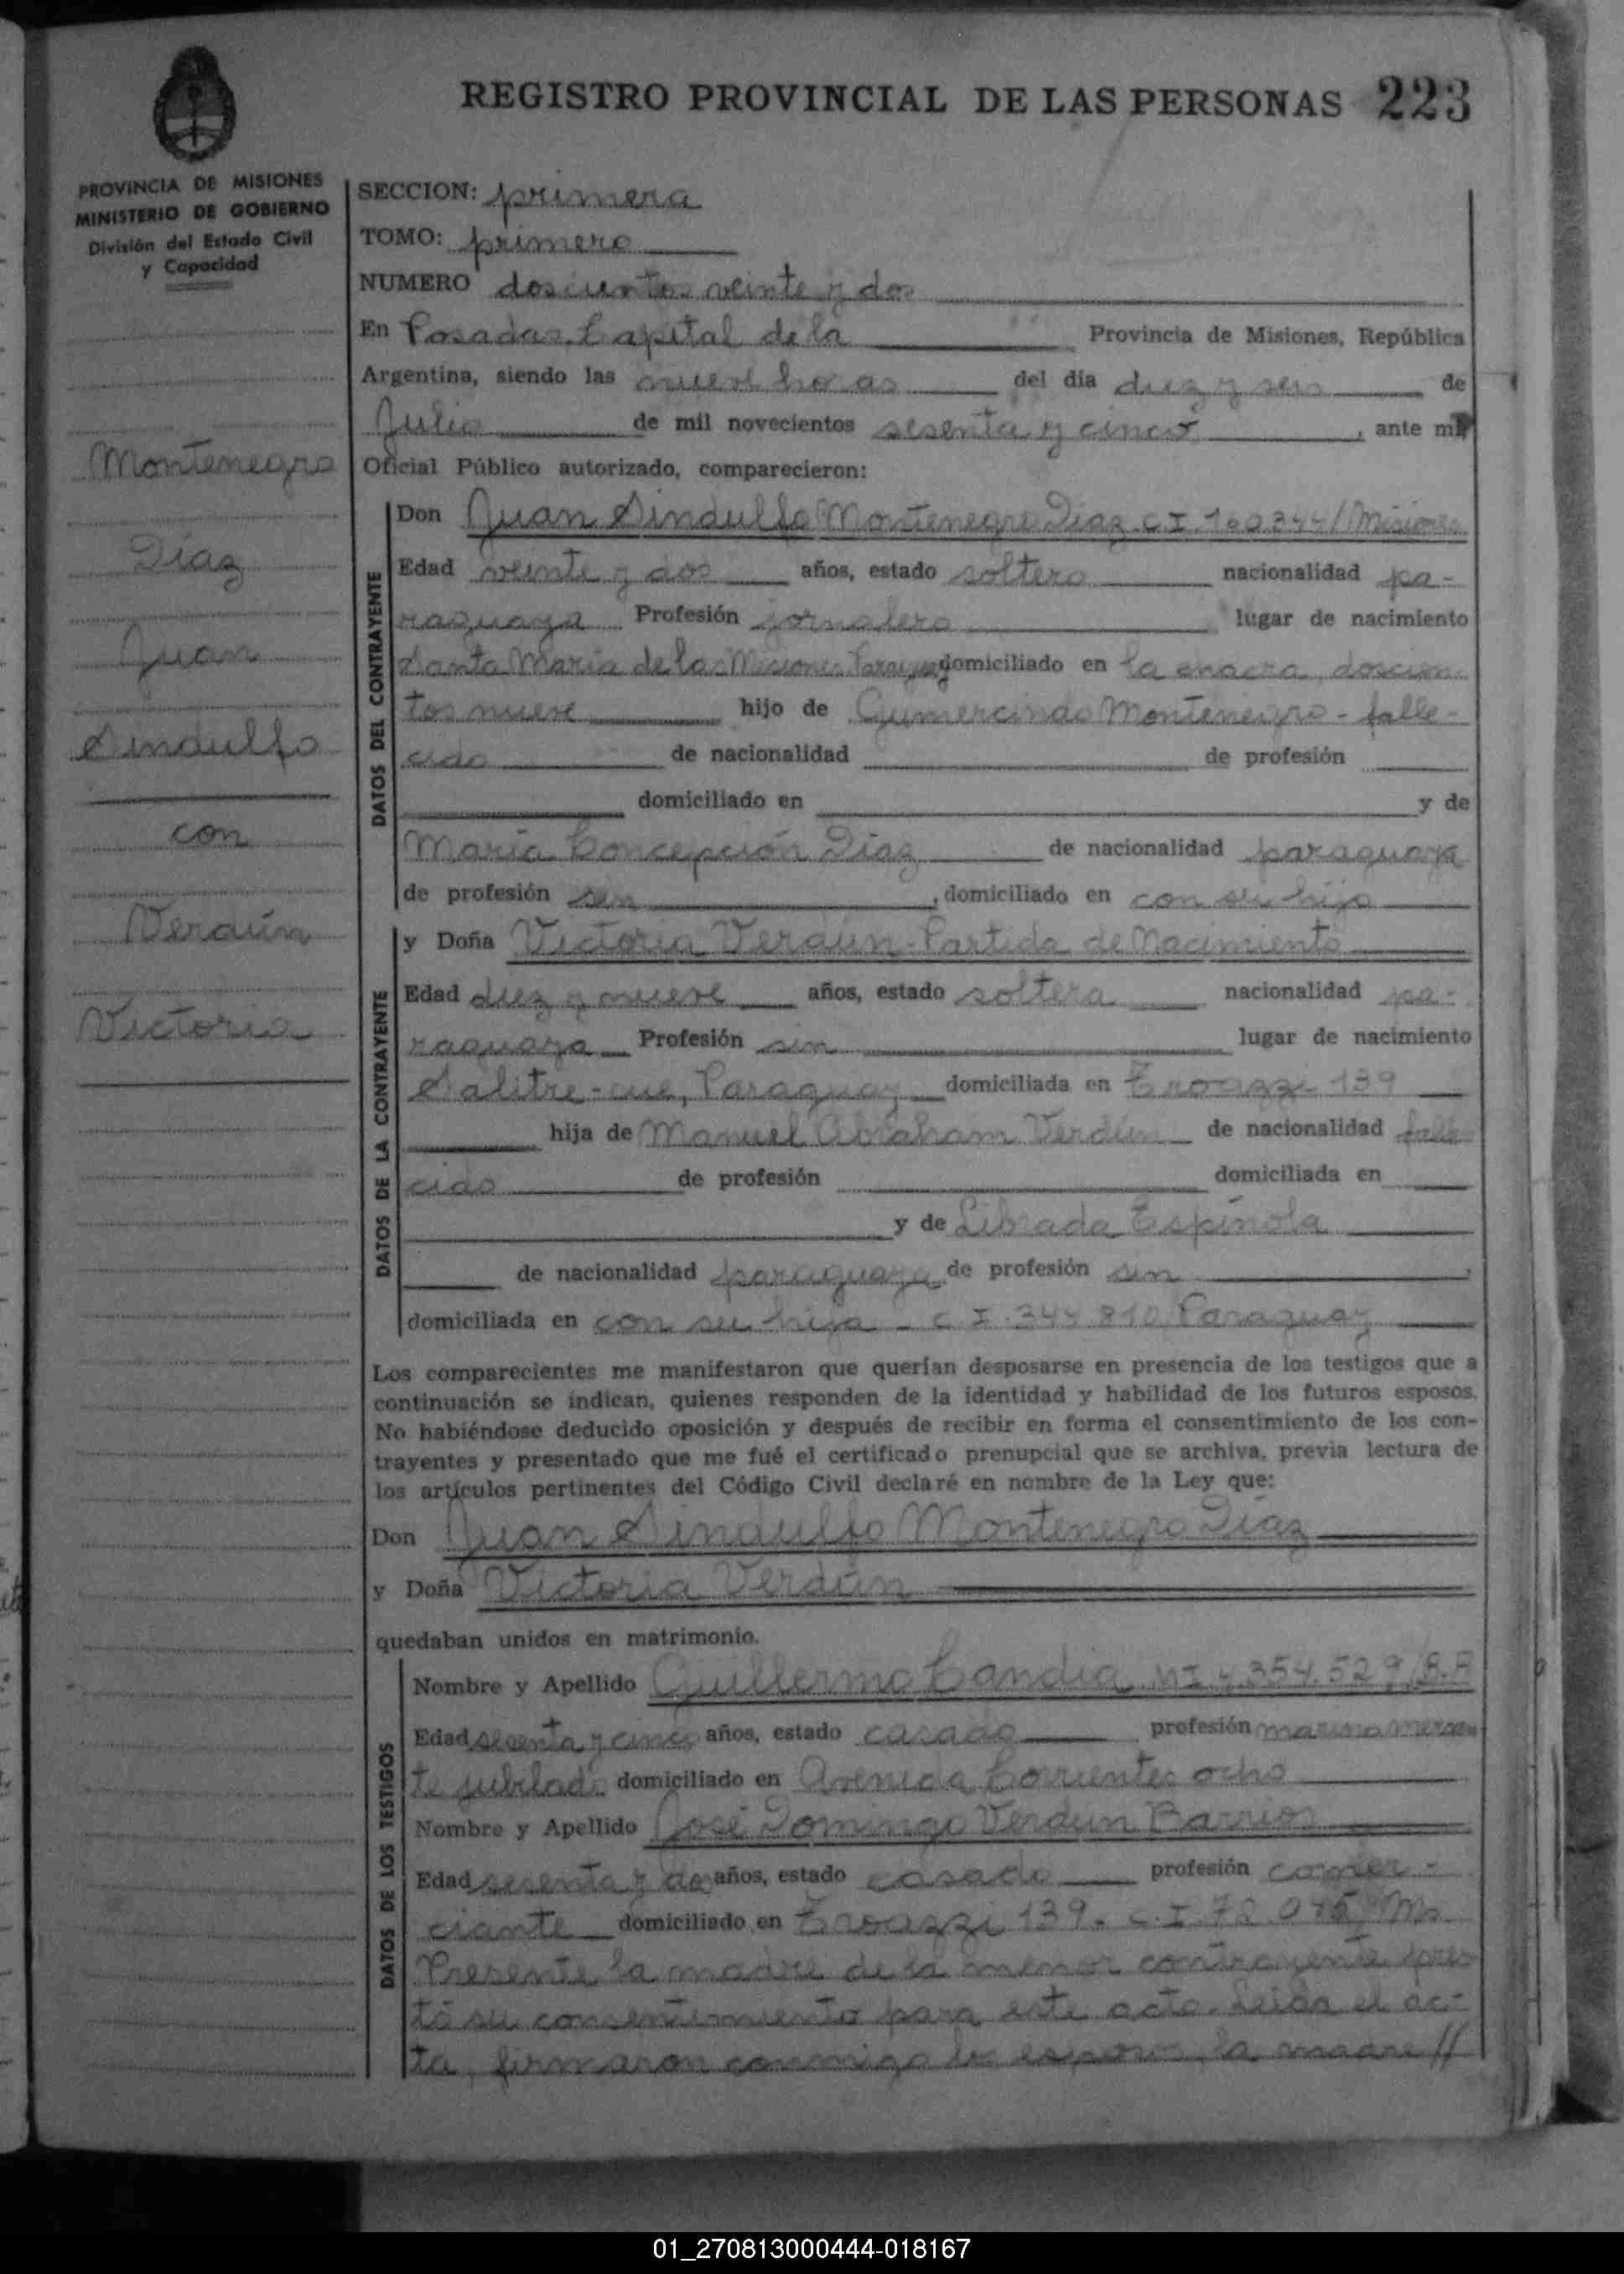 REGISTRO PROVINCIAL DE LAS PERSONAS 223
PROVINCIA DE MISIONES
MINISTERIO DE GOBIERNO
División del Estado Civil
y Capacidad
Montenegro
Díaz
Juan
Sindulfo
con
Verdún
Victoria
SECCION: primera
TOMO: primero
NUMERO doscientos veinte y dos
En Posadas, Capital de la Provincia de Misiones, República
Argentina, siendo las nueve horas del día diez y seis de
Julio de mil novecientos sesenta y cinco, ante mí
Oficial Público autorizado, comparecieron:
DATOS DEL CONTRAYENTE
Don Juan Sindulfo Montenegro Díaz C.I. 160.344/Misiones
Edad veinte y dos años, estado soltero nacionalidad pa-
raguaya Profesión jornalero lugar de nacimiento
Santa María de las Misiones, Paraguay domiciliado en la chacra doscien-
tos nueve hijo de Gumercindo Montenegro - falle-
cido de nacionalidad de profesión
domiciliado en y de
María Concepción Díaz de nacionalidad paraguaya
de profesión sin, domiciliado en con su hijo
DATOS DE LA CONTRAYENTE
y Doña Victoria Verdún - Partida de Nacimiento
Edad diez y nueve años, estado soltera nacionalidad pa-
raguaya Profesión sin lugar de nacimiento
Salitre-cué, Paraguay domiciliada en Troazzi 139
hija de Manuel Abraham Verdún de nacionalidad falle-
cido de profesión domiciliada en
y de Librada Espínola
de nacionalidad paraguaya de profesión sin
domiciliada en con su hija - C.I. 344.810, Paraguay
Los comparecientes me manifestaron que querían desposarse en presencia de los testigos que a
continuación se indican, quienes responden de la identidad y habilidad de los futuros esposos.
No habiéndose deducido oposición y después de recibir en forma el consentimiento de los con-
trayentes y presentado que me fué el certificado prenupcial que se archiva, previa lectura de
los artículos pertinentes del Código Civil declaré en nombre de la Ley que:
Don Juan Sindulfo Montenegro Díaz
y Doña Victoria Verdún
quedaban unidos en matrimonio.
DATOS DE LOS TESTIGOS
Nombre y Apellido Guillermo Candia MI 4.354.529/
Edad sesenta y cinco años, estado casado profesión marino mercan
te jubilado domiciliado en Avenida Corrientes ocho
Nombre y Apellido José Domingo Verdún Barrios
Edad sesenta y dos años, estado casado profesión comer-
ciante domiciliado en Troazzi 139. C.I. Ms
Presente la madre de la menor contrayente pres
tó su consentimiento para este acto. Leída el ac-
ta, firmaron conmigo los esposos, la madre //
01_270813000444-018167